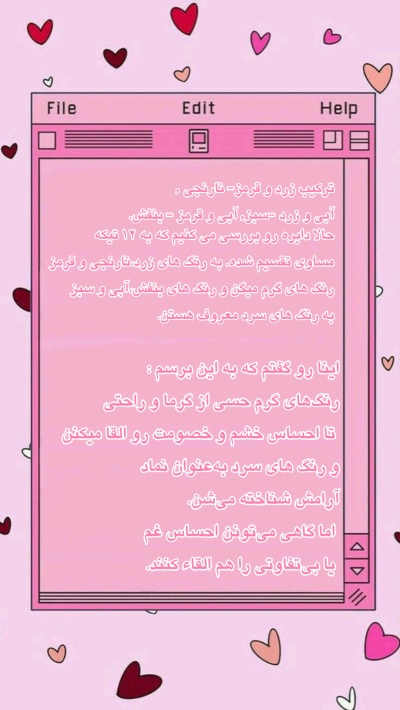 File Edit Help
ترکیب زرد و قرمز- نارنجی ,
آبی و زرد -سبز, آبی و قرمز - بنفش.
حالا دایره رو بررسی می کنیم که به ۱۲ تیکه
مساوی تقسیم شده. به رنگ های زرد،نارنجی و قرمز
رنگ های گرم میگن و رنگ های بنفش،آبی و سبز
به رنگ های سرد معروف هستن.
اینا رو گفتم که به این برسم :
رنگ‌های گرم حسی از گرما و راحتی
تا احساس خشم و خصومت رو القا میکنن
و رنگ های سرد به‌عنوان نماد
آرامش شناخته می‌شن.
اما گاهی می‌تونن احساس غم
یا بی‌تفاوتی را هم القاء کنند.